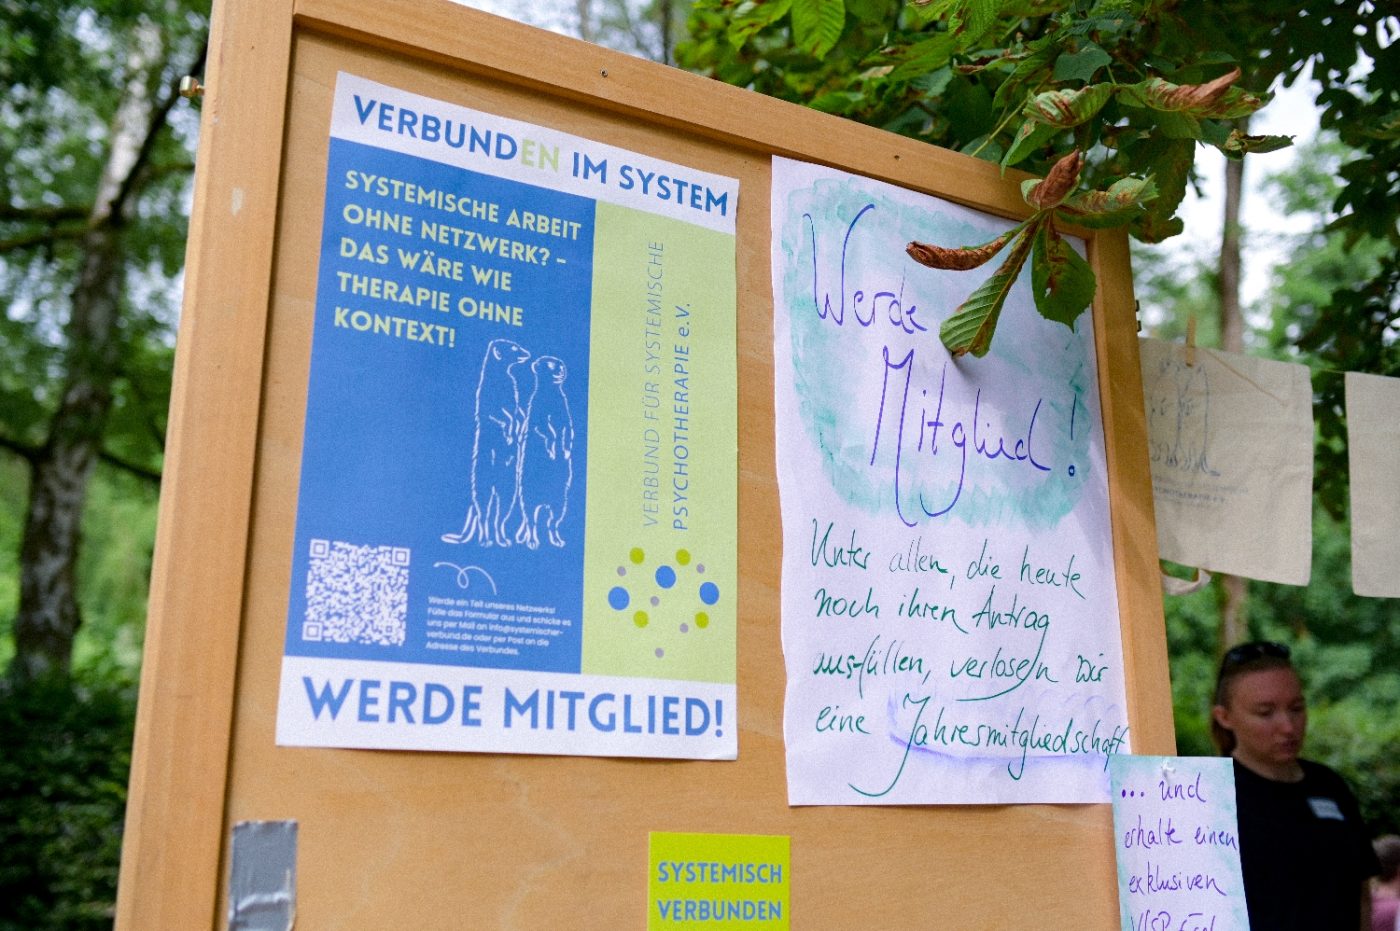 VERBUNDEN IM SYSTEM
SYSTEMISCHE ARBEIT
OHNE NETZWERK? –
DAS WÄRE WIE
THERAPIE OHNE
KONTEXT!
VERBUND FÜR SYSTEMISCHE
PSYCHOTHERAPIE e.V.
Werde ein Teil unseres Netzwerks!
Fülle das Formular aus und schicke es
uns per Mail an info@systemischer-
verbund.de oder per Post an die
Adresse des Verbundes.
WERDE MITGLIED!
Werde
Mitglied!
Unter allen, die heute
noch ihren Antrag
ausfüllen, verlosen wir
eine Jahresmitgliedschaft
... und
erhalte einen
exklusiven
SYSTEMISCH
VERBUNDEN